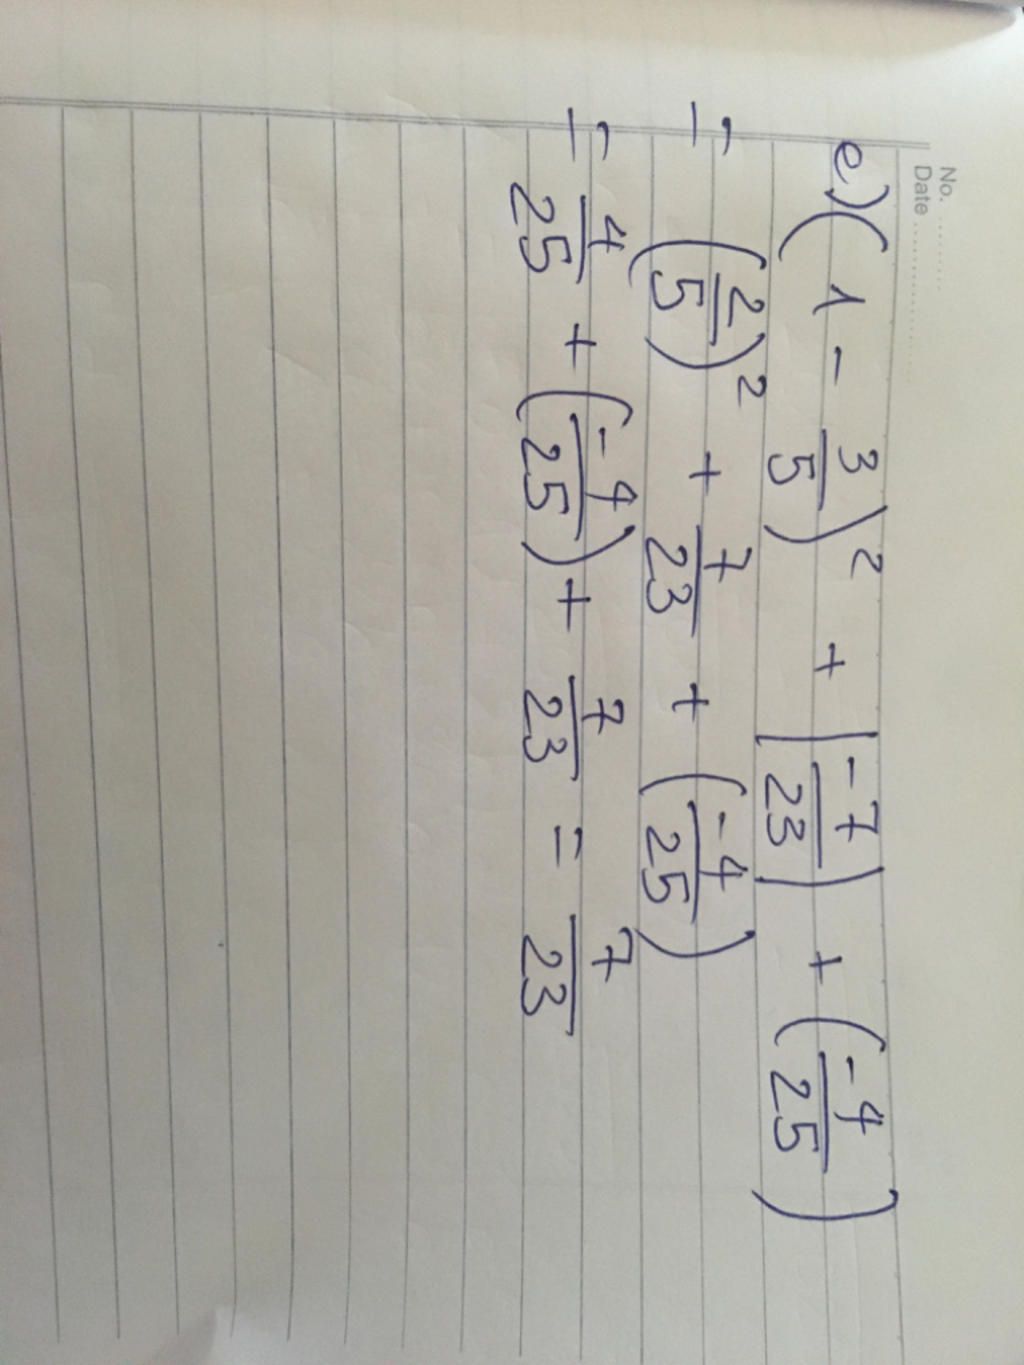 No. ............
Date .....................
e) (1 - 3/5)² + |-7/23| + (-4/25)
= (2/5)² + 7/23 + (-4/25)
= 4/25 + (-4/25) + 7/23 = 7/23